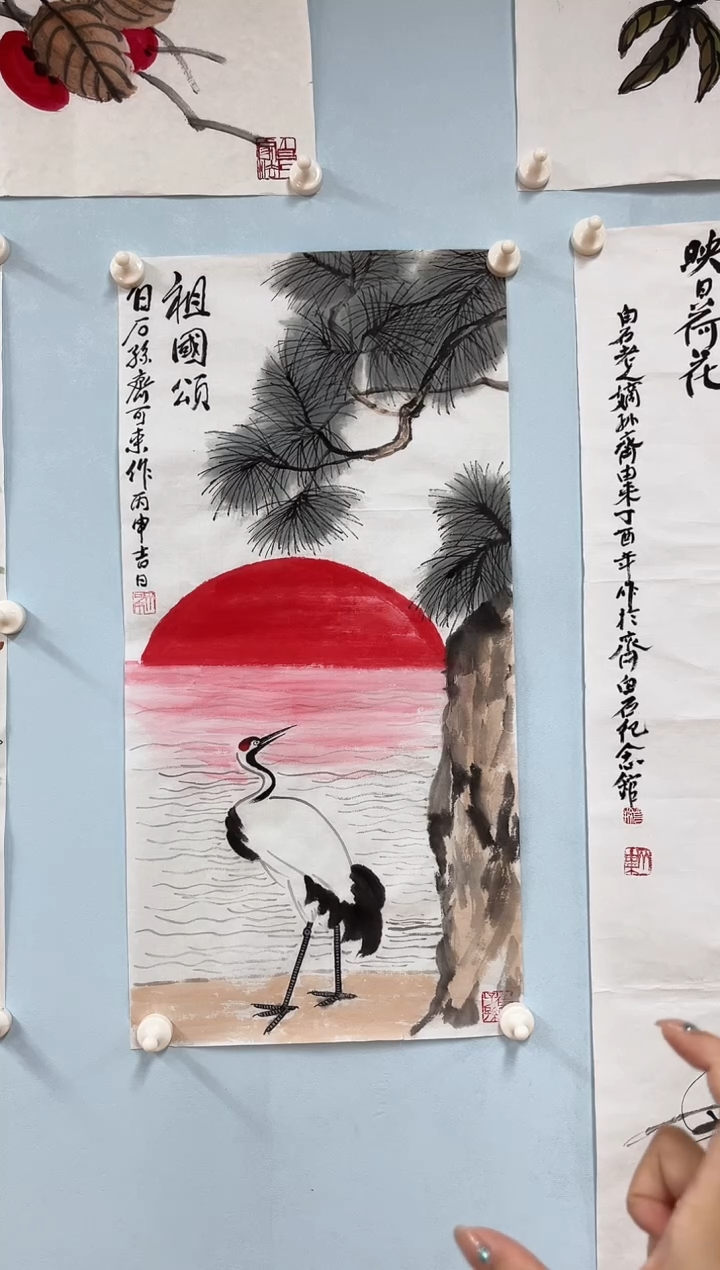 祖國頌
白石孫齊可來作丙申吉日
映日荷花
白石老人嫡孙齊由来丁酉年作於齊白石纪念館